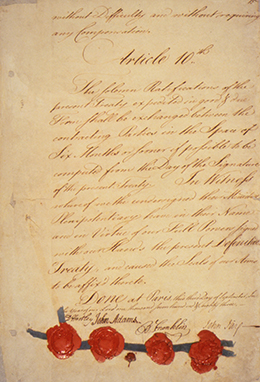 without Difficulty and without requiring
any Compensation.
Article 10th
The solemn Ratifications of the
present Treaty expedited in good & due
Form shall be exchanged between the
contracting Parties in the Space of
Six Months or sooner if possible to be
computed from the Day of the Signature
of the present Treaty. In Witness
whereof we the undersigned their Ministers
Plenipotentiary have in their Name
and in Virtue of our Full Powers signed
with our Hands the present Definitive
Treaty, and caused the Seals of our Arms
to be affix'd thereto.
Done at Paris this third Day of September
D Hartley John Adams B Franklin John Jay